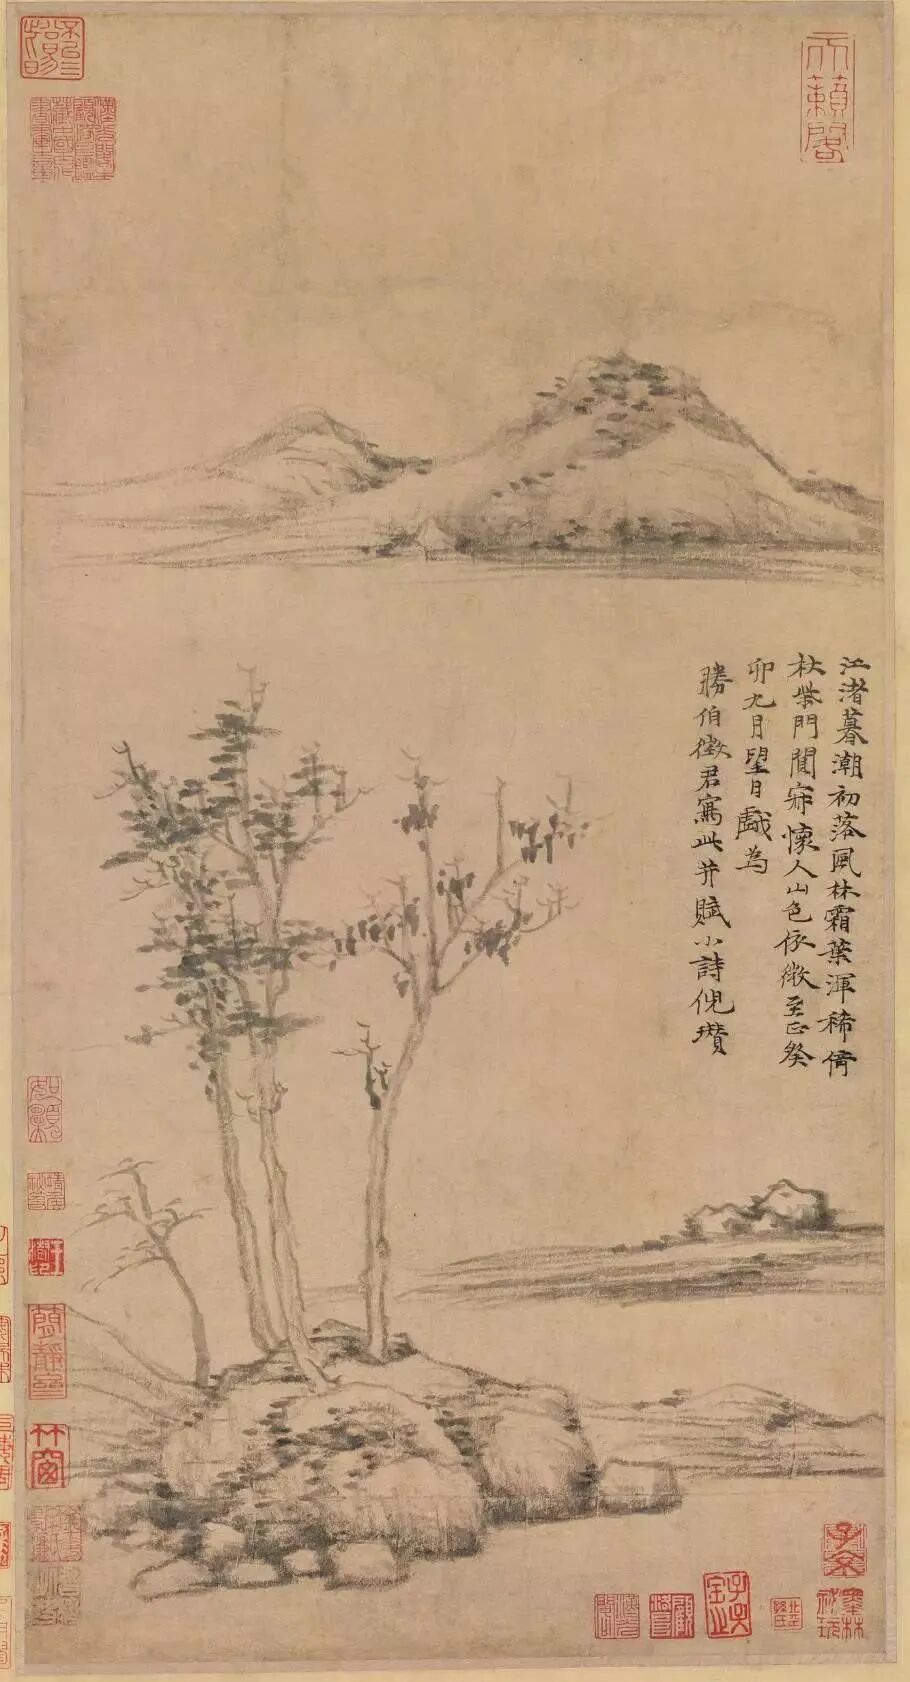 天籟閣
江渚暮潮初落風林霜葉渾稀倚
杖柴門闃寂懷人山色依微至正癸
卯九月望日戲為
勝伯徵君寫此并賦小詩倪瓚
簡靜齋
竹窗
墨林祕玩